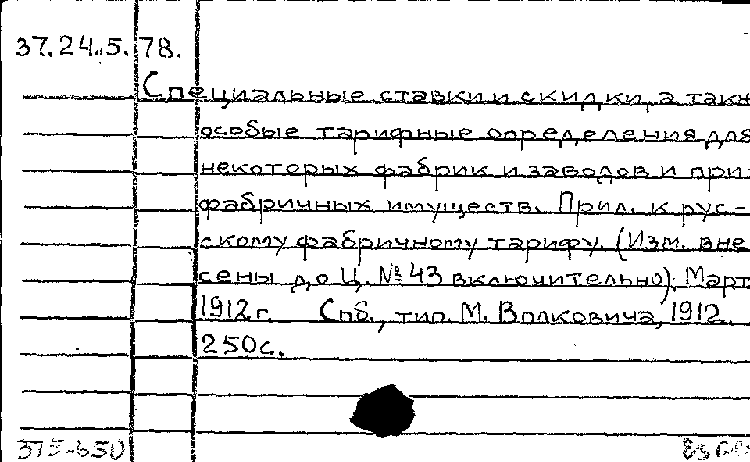 37.24.5.78.
Специальные ставки и скидки, а такж
особые тарифные определения для
некоторых фабрик и заводов и при-
фабричных имуществ. Прил. к рус-
скому фабричному тарифу. (Изм. вне
сены до Ц. № 43 включительно). Март
1912 г. Спб., тип. М. Волковича, 1912.
250 с.
375-650